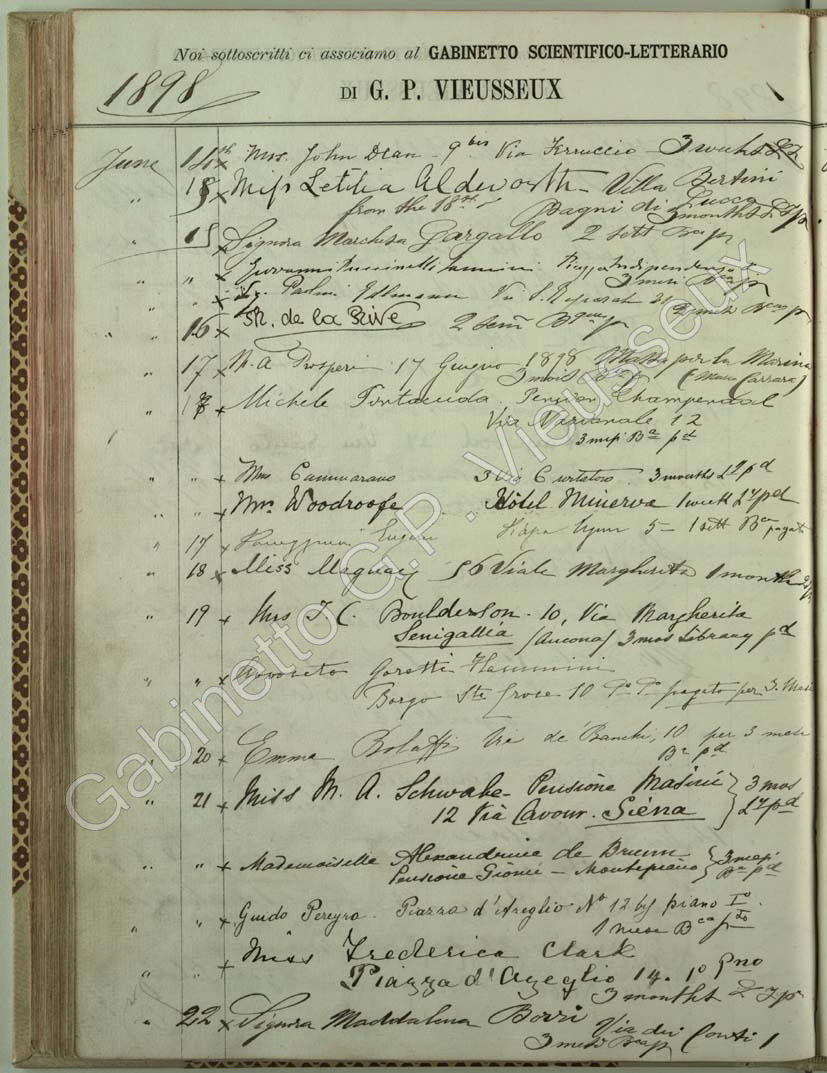 Noi sottoscritti ci associamo al GABINETTO SCIENTIFICO-LETTERARIO
1898
DI G. P. VIEUSSEUX
June 14th x Mrs. John Dean - 9 bis Via Ferruccio - 3 weeks
15 x Miss Letitia Aldworth - Villa Bertini
from the 18th Bagni di Lucca
3 months
" 15 x Signora Marchesa Gargallo 2 sett
" " x Giovanni Piazza Indipendenza
3 mesi
" " x Via S. Reparata
" 16 x SR. de la Rive 2
" 17 x Prosperi 17 Giugno 1898 per la Marina
3 mois (Massa Carrara)
" 18 x Michele Pension Champendal
Via Nazionale 12
3 mesi Ba pd
" " x Mme Cammarano 3 Via Curtatone 3 months pd
" " x Mrs. Woodroofe Hôtel Minerva 1 week pd
" 17 x 5 - 1 sett pagato
" 18 x Miss Maquay 56 Viale Margherita 1 month
" 19 x Mrs T. C. Boulderson - 10, Via Margherita
Senigallia (Ancona) 3 mos Library pd
" " x Avvocato Goretti Flamini
Borgo Sta Croce 10 pagato per 3 Mesi
" 20 x Emma Bolaffi Via de' Banchi, 10 per 3 mesi
pd
" 21 x Miss M. A. Schwabe - Pensione Masini } 3 mos
12 Via Cavour. Siena } pd
" " x Mademoiselle Alexandrine de Brunn } 3 mesi
Pensione - Montepiano } Ba pd
" x Guido Pereyra. Piazza d'Azeglio No 12 bis piano Io.
1 mese
" " x Miss Frederica Clark
Piazza d'Azeglio 14. 1o Pno
3 months
" 22 x Signora Maddalena Borri
Via dei Conti 1
3 mesi
Gabinetto G. P. Vieusseux